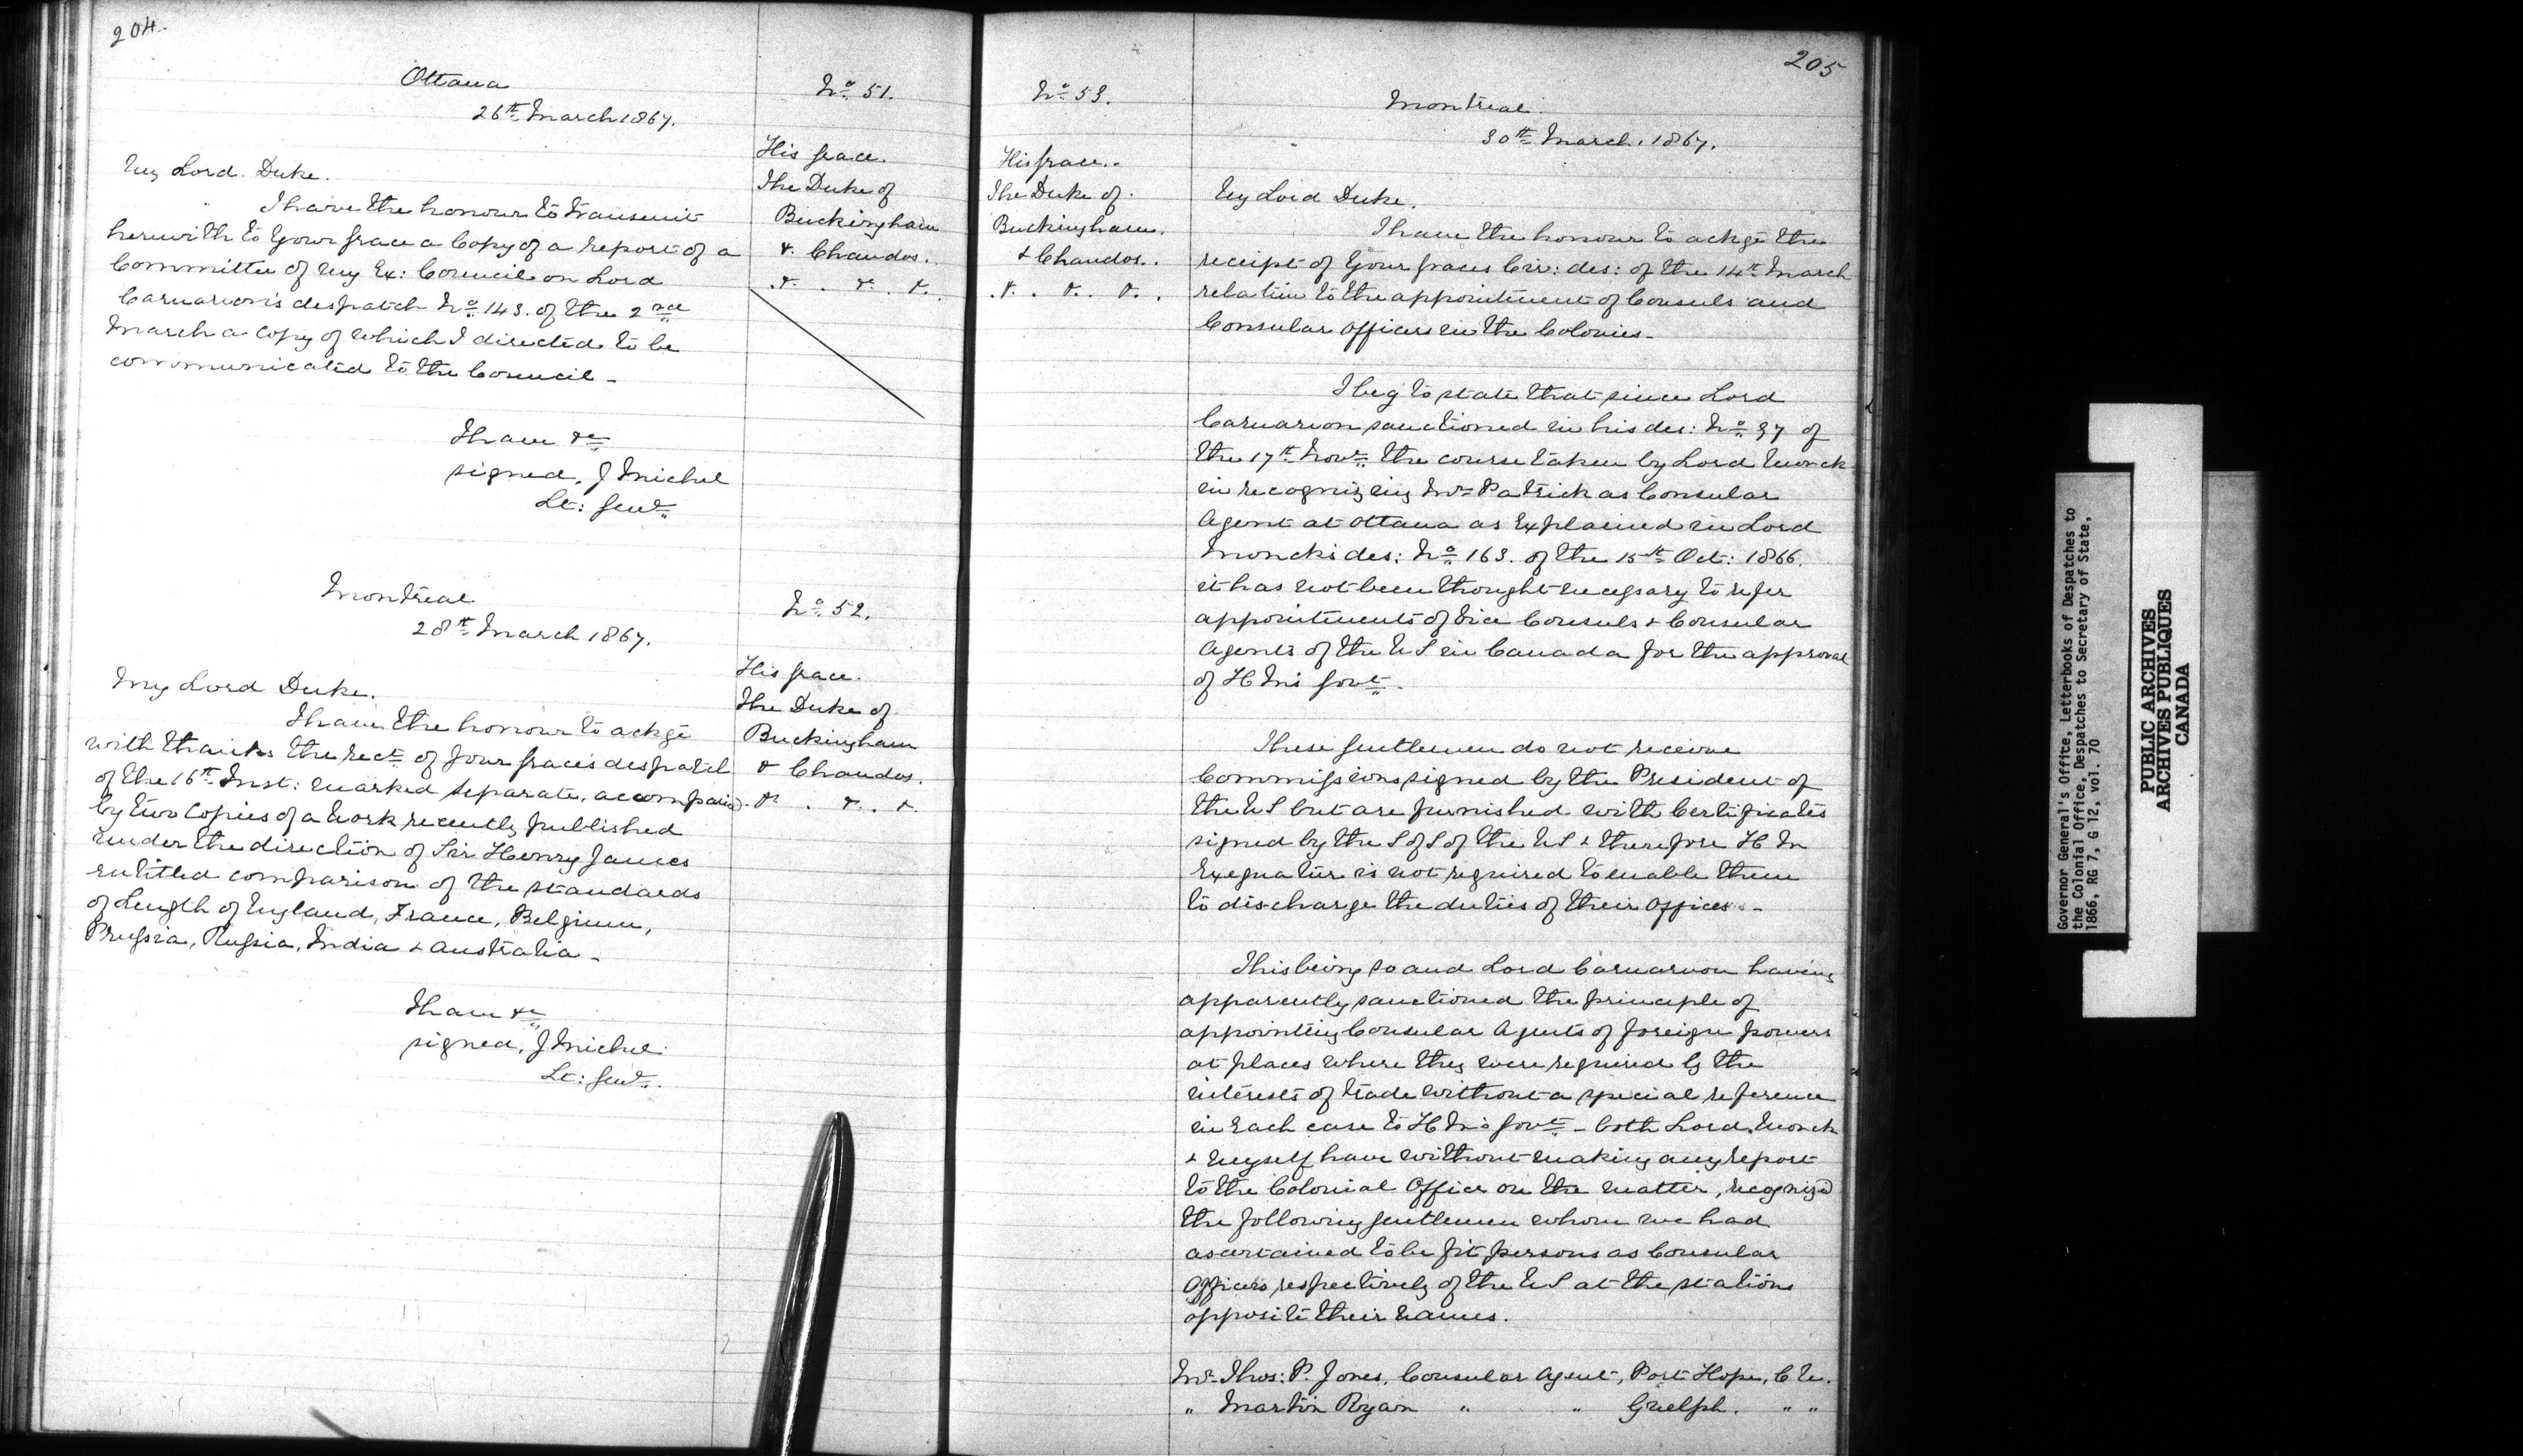 204.
Ottawa
26th March 1867.
No. 51.
His Grace.
The Duke of
Buckingham
& Chandos.
&. . &. &.
My Lord Duke.
I have the honour to transmit
herewith to Your Grace a Copy of a report of a
Committee of my Ex: Council on Lord
Carnarvon's despatch No. 143. of the 2nd
March a copy of which I directed to be
communicated to the Council -
I have &c
signed, J Michel
Lt: Genl.
Montreal
28th March 1867.
No. 52.
His Grace.
The Duke of
Buckingham
& Chandos.
&. . &. &.
My Lord Duke.
I have the honour to ackge
with thanks the rect. of your Grace's despatch
of the 16th Inst: marked separate, accompanied
by two Copies of a Work recently published
under the direction of Sir Henry James
entitled comparison of the standards
of Length of England, France, Belgium,
Prussia, Russia, India & Australia -
I have &c
signed, J Michel
Lt: Genl.
205
No. 53.
His Grace.
The Duke of
Buckingham.
& Chandos.
. &. . &. . &. .
Montreal.
30th March. 1867.
My Lord Duke.
I have the honour to ackge the
receipt of Your Graces Cir: des: of the 14th March
relative to the appointment of Consuls and
Consular Officers in the Colonies -
I beg to state that since Lord
Carnarvon sanctioned in his des: No. 37 of
the 17th Novr. the course taken by Lord Monck
in recognizing Mr. Patrick as Consular
Agent at Ottawa as explained in Lord
Moncks des: No. 163. of the 15th Oct: 1866.
it has not been thought necessary to refer
appointments of Vice Consuls & Consular
Agents of the U S in Canada for the approval
of H M's Govt.
These Gentlemen do not receive
Commissions signed by the President of
the U S but are furnished with Certificates
signed by the S of S of the U S & therefore H M
Exequatur is not required to enable them
to discharge the duties of their Offices -
This being so and Lord Carnarvon having
apparently sanctioned the principle of
appointing Consular Agents of foreign powers
at places where they were required by the
interests of trade without a special reference
in each case to H M's Govt. - both Lord Monck
& myself have without making any report
to the Colonial Office on the matter, recognized
the following Gentlemen whom we had
ascertained to be fit persons as Consular
Officers respectively of the U S at the stations
opposite their names.
Mr. Thos: P. Jones, Consular Agent, Port Hope, C W.
" Martin Ryan " " Guelph. " "
Governor General's Office, Letterbooks of Despatches to
the Colonial Office, Despatches to Secretary of State,
1866, RG 7, G 12, vol. 70
PUBLIC ARCHIVES
ARCHIVES PUBLIQUES
CANADA